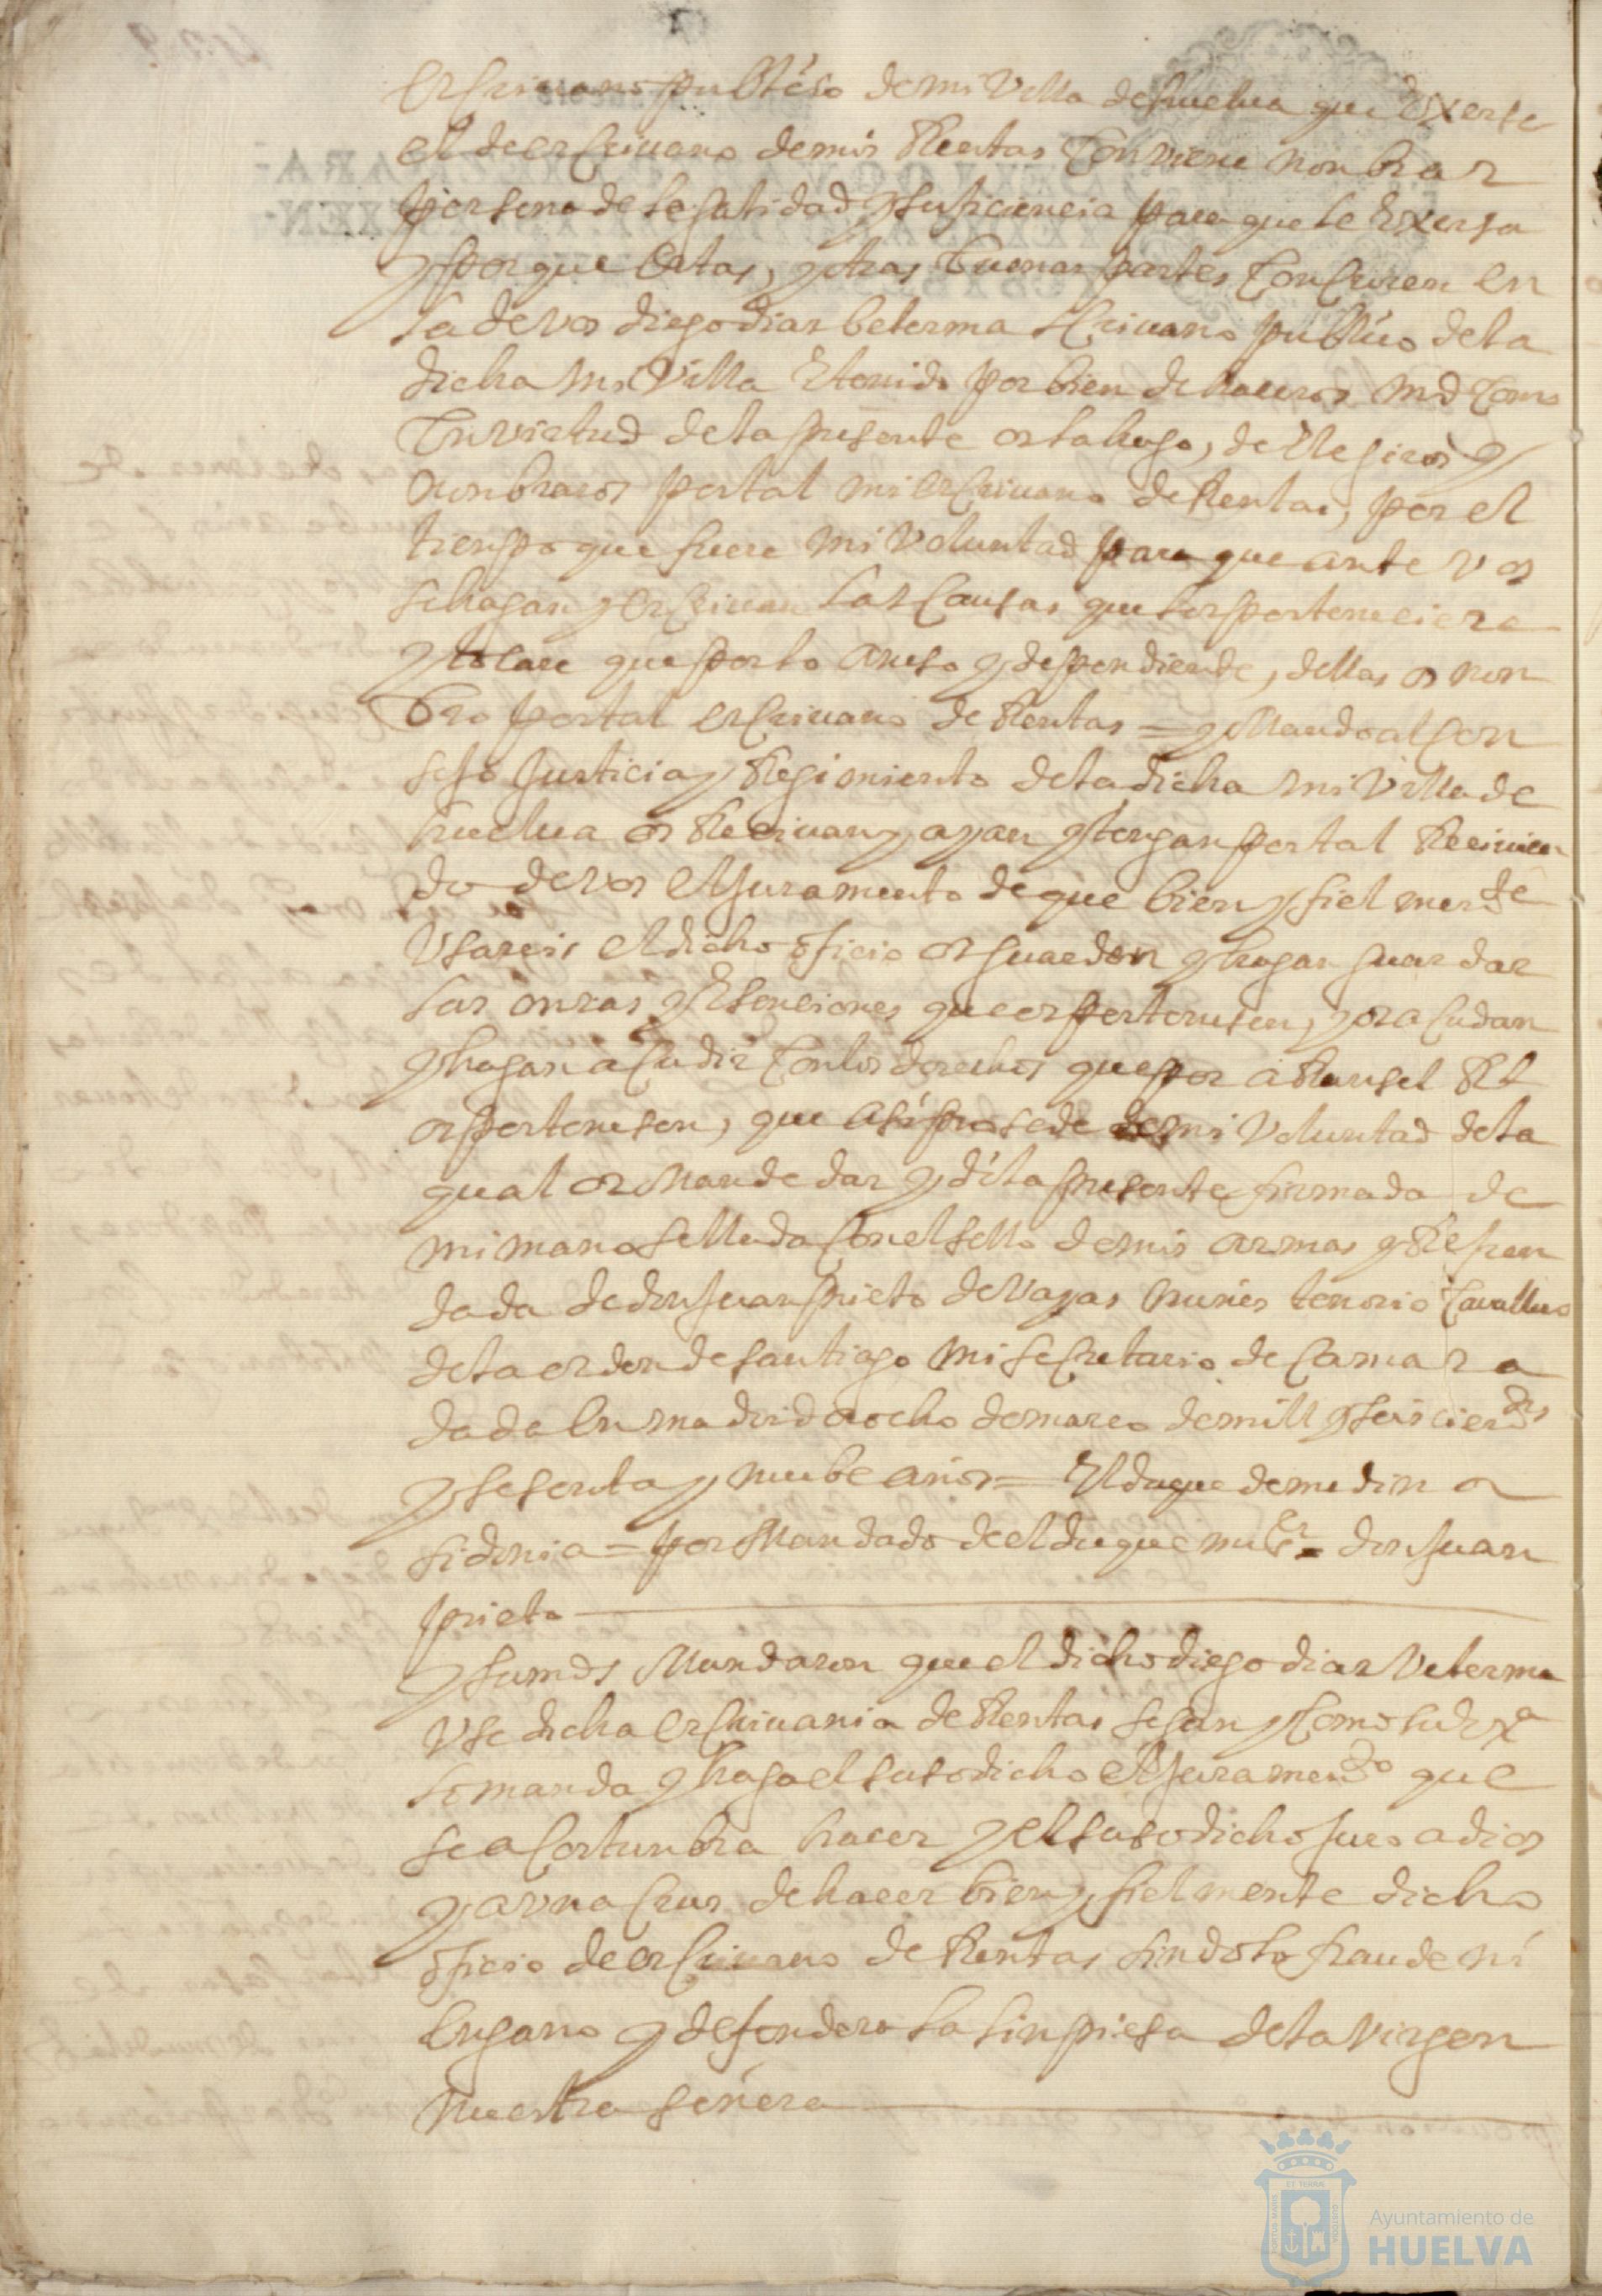 escriuano publico de mi Villa de huelua que exerse
el de escriuano de mis Rentas Conviene nonbrar
persona de legalidad y suficiencia para que le exersa
y porque estas, y otras buenas partes Concuren en
la de vos diego dias beterma escriuano publico de la
dicha mi Villa E tenido por bien de haceros md Como
En virtud de la presente os la hago, de Elegiros y
nonbraros por tal mi escriuano de Rentas, por el
tienpo que fuere mi Voluntad para que ante vos
se hagan y escriuan las Causas que les perteneciere
y tocare que por lo anexo y dependiente, dellas os non
bro por tal escriuano de Rentas = y Mando al Con
sejo Justicia y Regimiento de la dicha mi Villa de
huelua os Reciuan y ayan y tengan por tal Reciuien
do de vos el Juramento de que bien y fielmente
Vsareis el dicho oficio os guarden y hagan guardar
las onras y Esenciones que os pertenesen, y os acudan
y hagan acudir Con los derechos que por aRansel Rl
os pertenesen, que asi prosede de mi Voluntad de la
qual os Mande dar y di la presente firmada de
mi mano sellada Con el sello de mis armas y Refren
dada de don Juan prieto de Vayas nunes tenorio Cauallero
de la orden de santiago mi secretario de Camara
dada en madrid a ocho de marco de mill y seiscientos
y sesenta y nuebe años = El duque de medina
sidonia = por Mandado de el duque mi sr = don Juan
prieto
y sus mds Mandaron que el dicho diego dias Veterma
Vse dicha escriuania de Rentas segun y Como su exa
lo manda y haga el susodicho el Juramento que
se acostunbra hacer y el susodicho Juro a dios
y a vna Crus de hacer bien y fielmente dicho
oficio de escriuano de Rentas sin dolo fraude ni
Engano y defendera la linpiesa de la virgen
nuestra señora
Ayuntamiento de
HUELVA